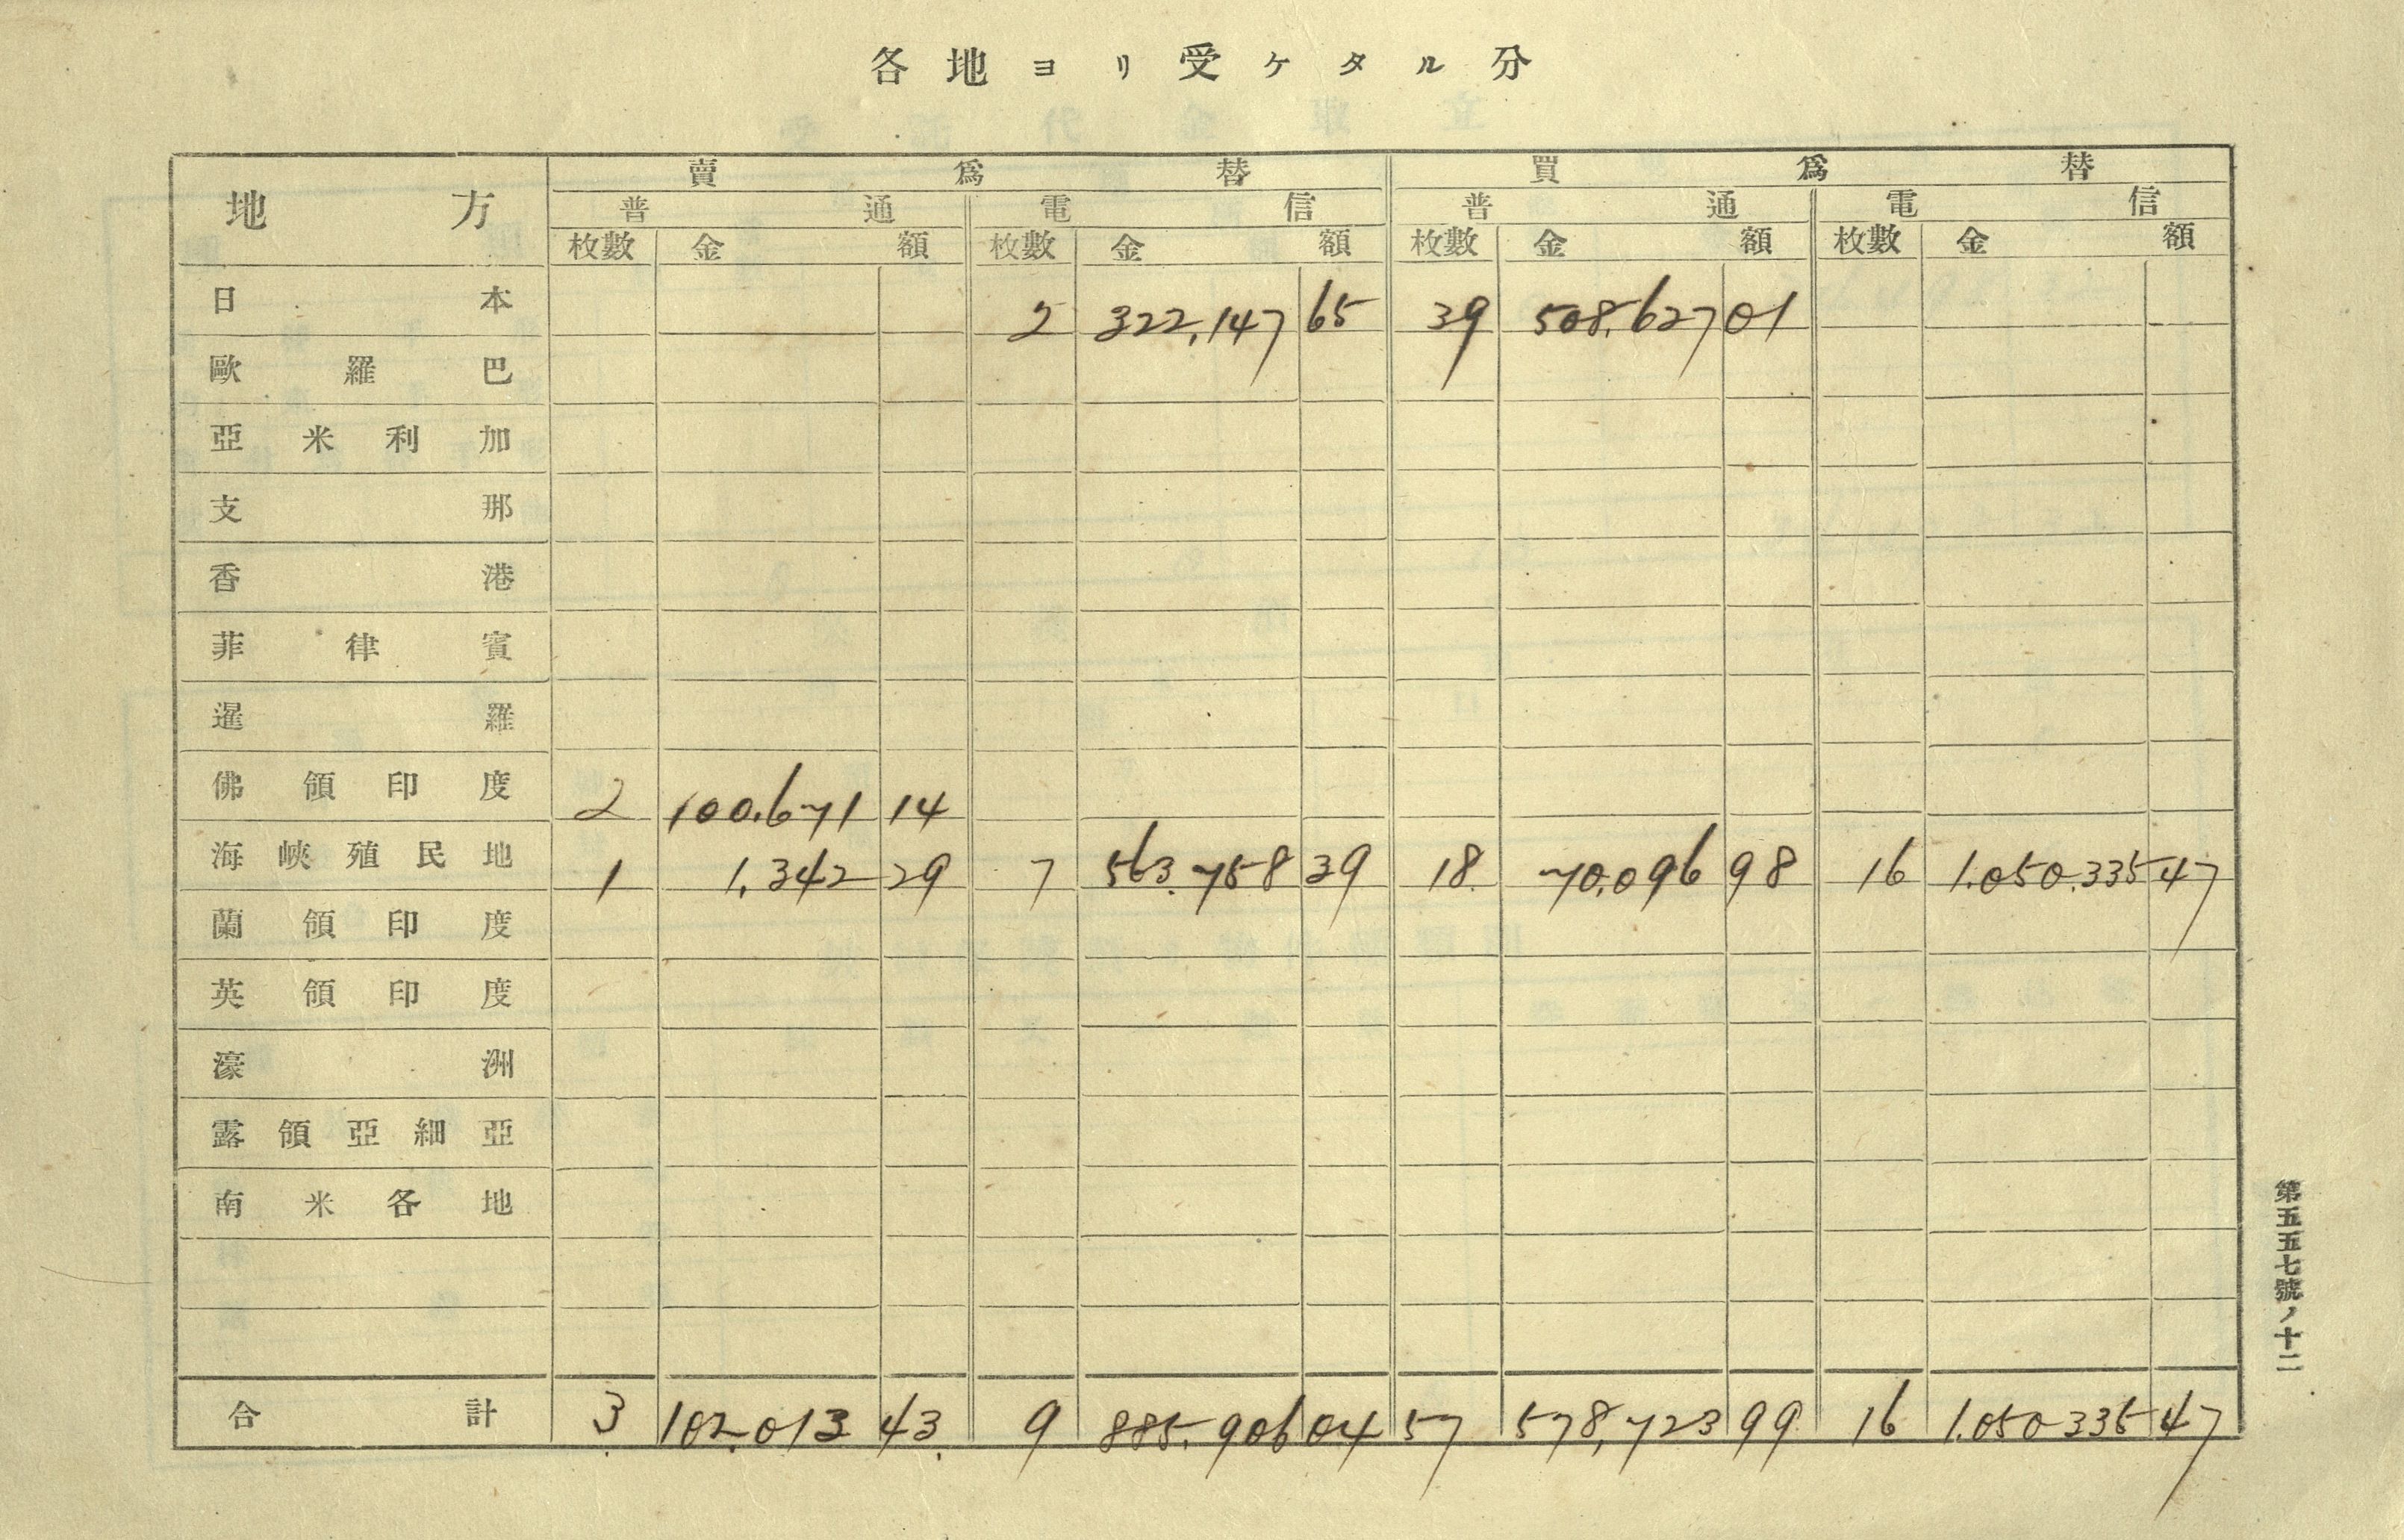 各地ヨリ受ケタル分
地方 賣爲替 買爲替
普通 電信 普通 電信
枚數 金額 枚數 金額 枚數 金額 枚數 金額
日本 2 322,147 65 39 508,627 01
歐羅巴
亞米利加
支那
香港
菲律賓
暹羅
佛領印度 2 100,671 14
海峽殖民地 1 1,342 29 7 563,758 39 18 70,096 98 16 1,050,335 47
蘭領印度
英領印度
濠洲
露領亞細亞
南米各地
合計 3 102,013 43 9 885,906 04 57 578,723 99 16 1,050,335 47
第五五七號ノ十二